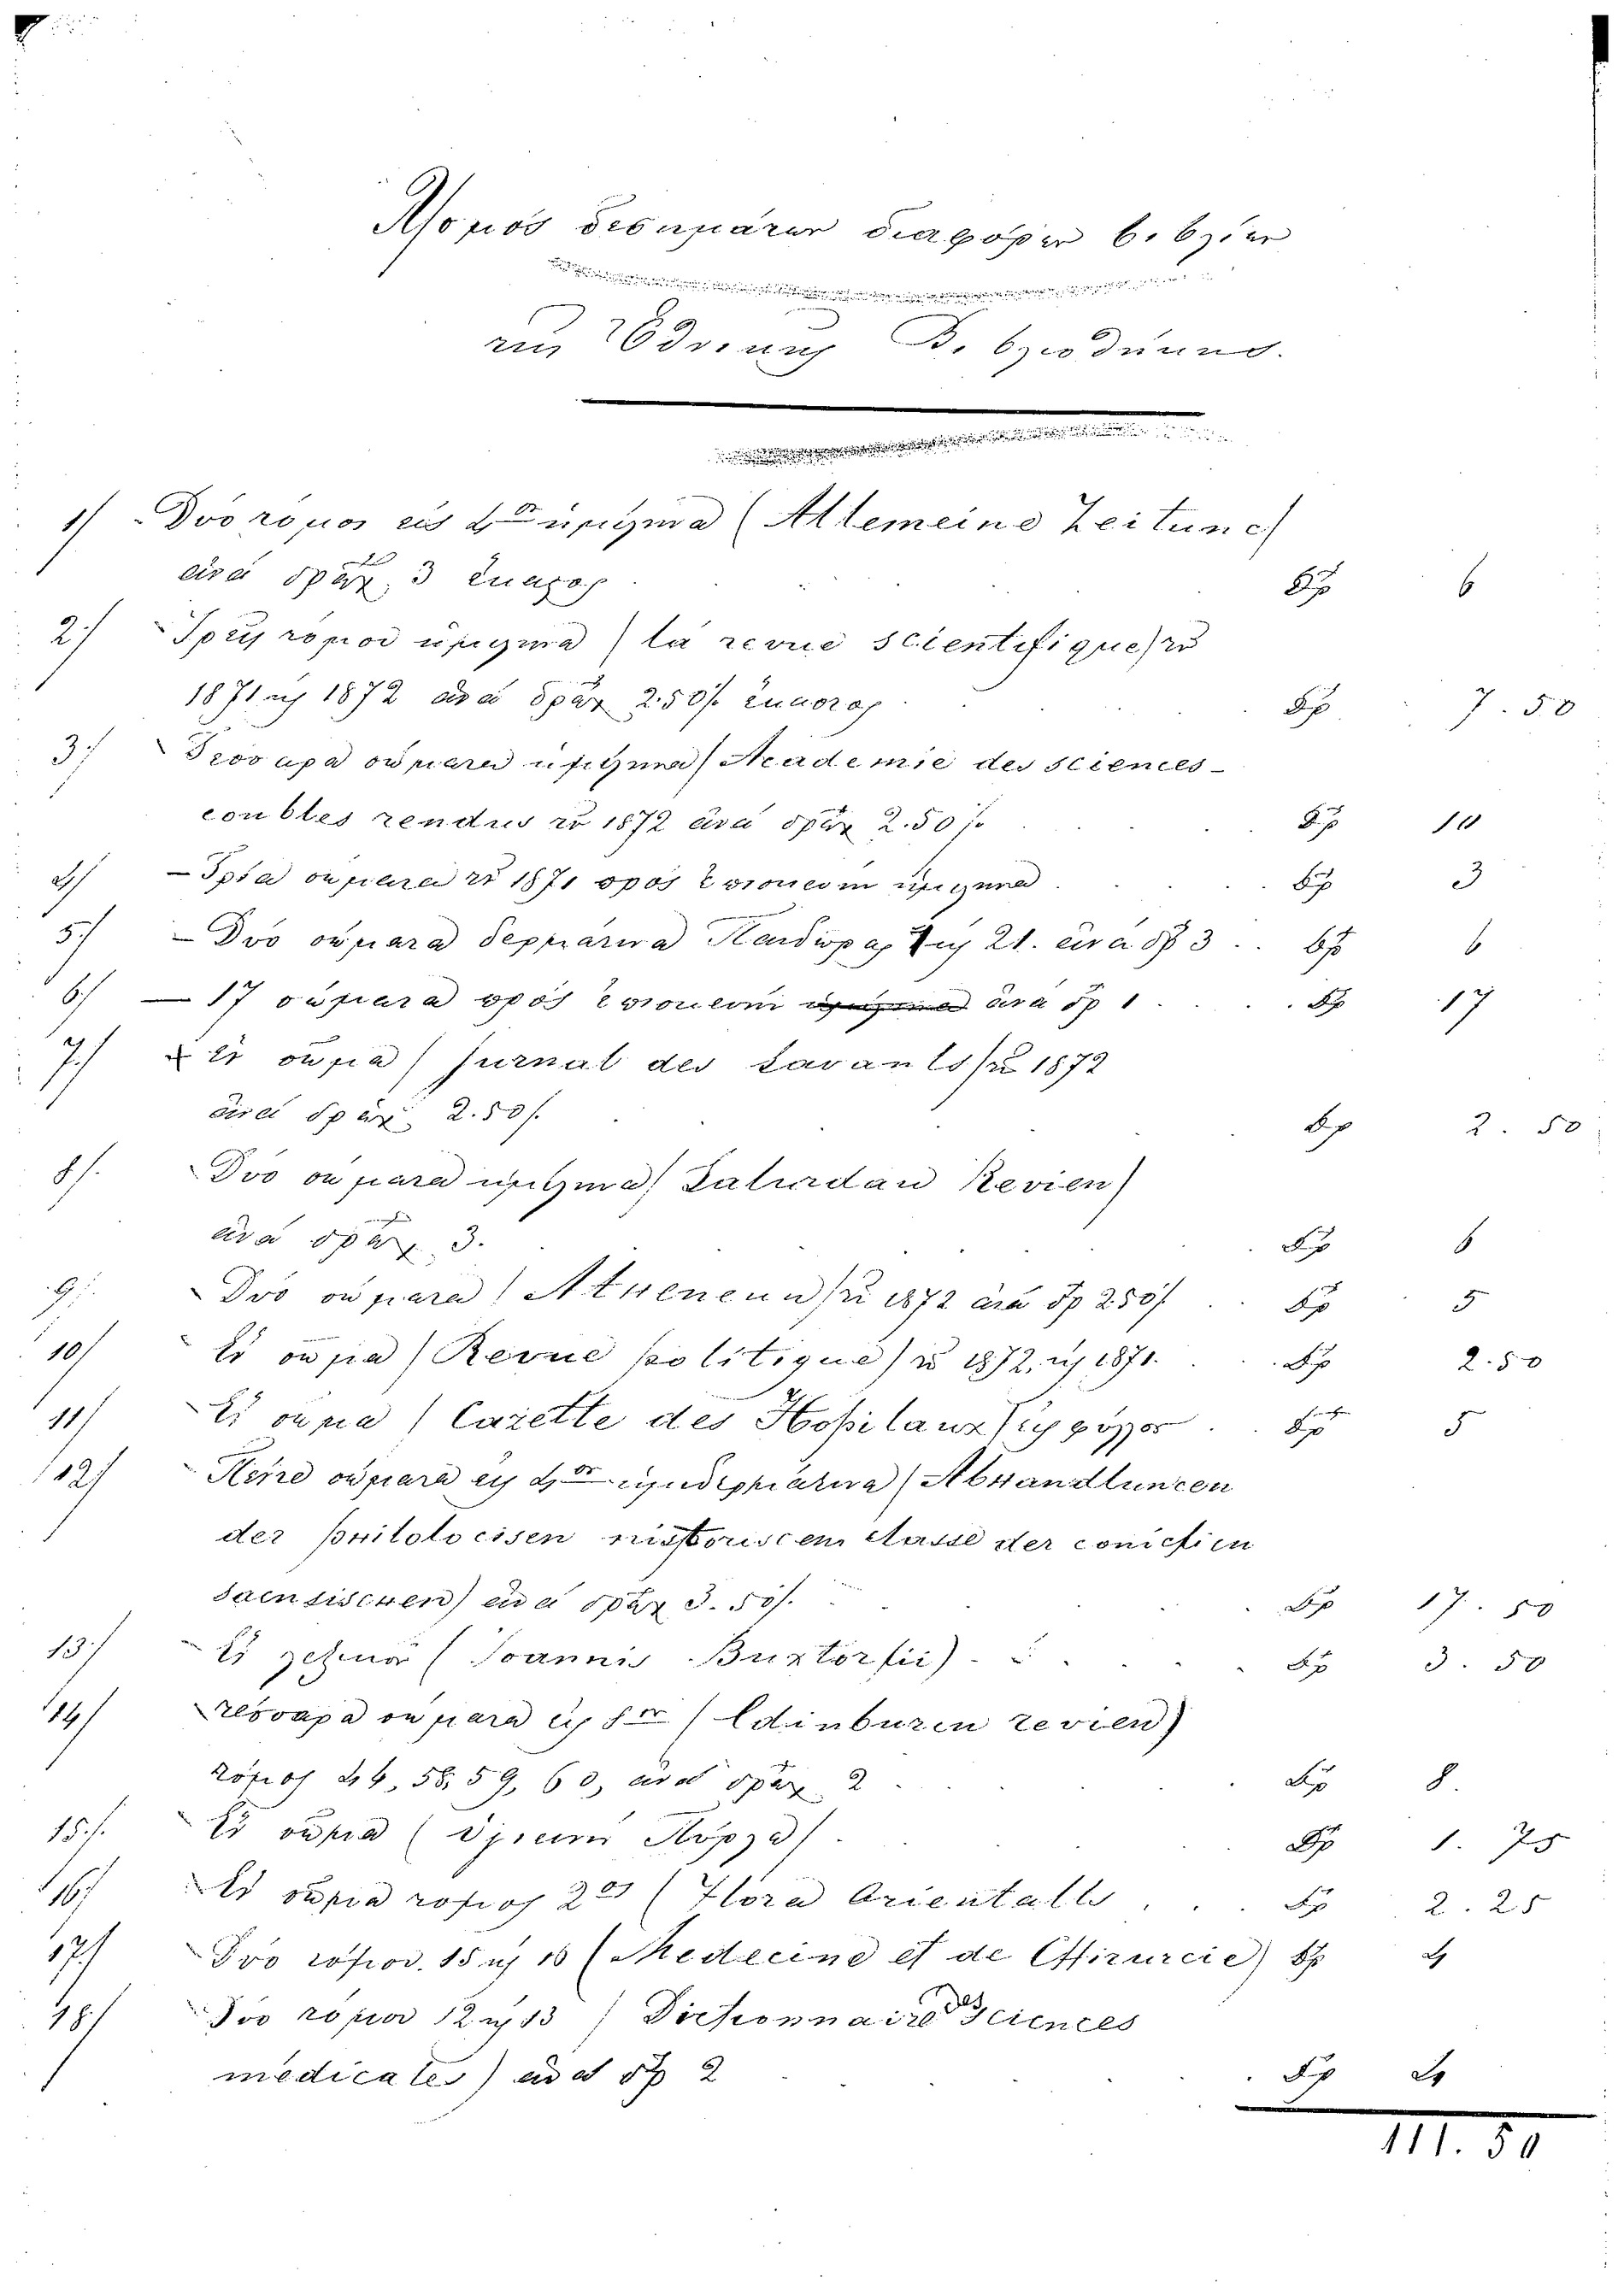 Λογ/σμός δεσιμάτων διαφόρων βιβλίων
της Ἐθνικῆς Βιβλιοθήκης.
1/ Δύο τόμοι εἰς 4ον ἡμίδερμα (Allemeine Zeitunc)
ἀνὰ δραχ. 3 ἕκαστος Δρ 6
2/ Τρεῖς τόμοι ἡμίδερμα (la revue scientifique) τοῦ
1871 καὶ 1872 ἀνὰ δραχ 2.50/. ἕκαστος Δρ 7.50
3/ Τέσσαρα σώματα ἡμίδερμα (Academie des sciences
conbtes rendus τοῦ 1872 ἀνὰ δραχ 2.50/. Δρ 10
4/ Τρία σώματα τοῦ 1871 ἡμίδερμα Δρ 3
5/ Δύο σώματα δερμάτινα καὶ 21. ἀνὰ δρ 3 Δρ 6
6/ 17 σώματα πρὸς ἀνὰ δρ 1 Δρ 17
7/ Ἓν σῶμα (Jurnal des Savants) τοῦ 1872
ἀνὰ δραχ. 2.50/. Δρ 2.50
8/. Δύο σώματα ἡμίδερμα (Saturdau Revien)
ἀνὰ δραχ. 3. Δρ 6
9/. Δύο σώματα (Atheneun) τοῦ 1872 ἀνὰ δρ 2.50/. Δρ 5
10/ Ἓν σῶμα (Revue politique) τοῦ 1872, καὶ 1871. Δρ 2.50
11/ Ἓν σῶμα (Cazette des Hopitaux) εἰς φύλλον Δρ 5
12/ Πέντε σώματα εἰς 4ον ἡμιδερμάτινα (Abhandluncen
der philolocisen historiscem classe der
saensischen) ἀνὰ δραχ 3.50/. Δρ 17.50
13/ Ἓν λεξικὸν (Joannis Buxtorfii) Δρ 3.50
14/ Τέσσαρα σώματα εἰς 8ον (Edinburcn revien)
τόμος 44, 58, 59, 60, ἀνὰ δραχ 2 Δρ 8.
15/. Ἓν σῶμα Δρ 1.75
16/ Ἓν σῶμα τόμος 2ος (Flora Orientalis Δρ 2.25
17/ Δύο τόμοι. 15 καὶ 16 (Medecine et de Chirurcie) Δρ 4
18/ Δύο τόμοι 12 καὶ 13 (Dictionnaire des Sciences
medicales) ἀνὰ δρ 2 Δρ 4
111.50